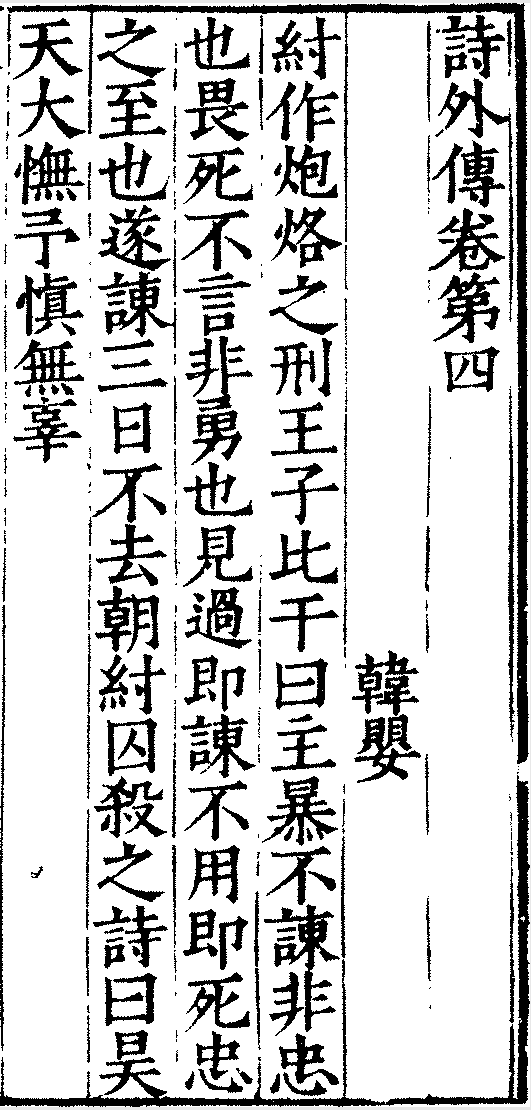 詩外傳卷第四
韓嬰
紂作炮烙之刑王子比干曰主暴不諫非忠
也畏死不言非勇也見過即諫不用即死忠
之至也遂諫三日不去朝紂囚殺之詩曰昊
天大憮予慎無辜